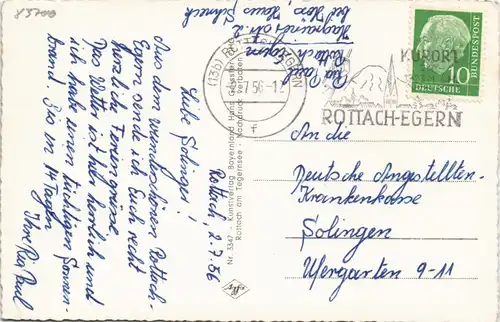 83700
Rottach, 2.7.56
Liebe Solinger!
Aus dem wunderschönen Rottach-
Egern sende ich Euch recht
herzliche Feriengrüsse.
Das Wetter ist sehr herrlich und
ich habe einen tüchtigen Sonnen-
brand. Bis in 14 Tagen
Ihre Ria Paul
Ria Paul
Rottach-Egern
Nr. 3347 - Kunstverlag Bayernland Hans
Rottach am Tegernsee - Nachdruck verboten
(13b) ROTTACH-EGERN
56-12
f
KURORT
ROTTACH-EGERN
10
DEUTSCHE
BUNDESPOST
An die
Deutsche Angestellten-
Krankenkasse
Solingen
Ufergarten 9-11